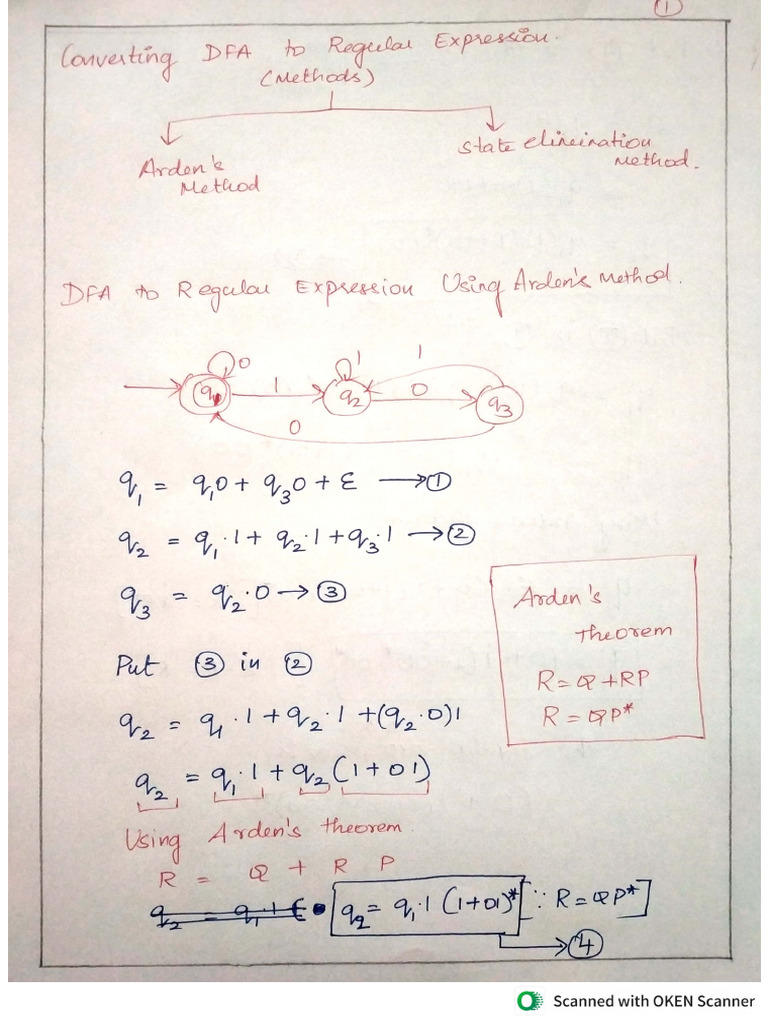 ①
Converting DFA to Regular Expression.
(Methods)
Arden's
Method
State elimination
Method.
DFA to Regular Expression Using Arden's Method.
0 1 1
q1 1 q2 0 q3
0
q1 = q1 0 + q3 0 + ε → ①
q2 = q1 . 1 + q2 . 1 + q3 . 1 → ②
q3 = q2 . 0 → ③
Put ③ in ②
q2 = q1 . 1 + q2 . 1 + (q2 . 0) 1
q2 = q1 . 1 + q2 (1 + 01)
Arden's
theorem
R = Q + RP
R = QP*
Using Arden's theorem
R = Q + R P
q2 = q1 . 1 (1 + 01)* [∵ R = QP*]
→ ④
Scanned with OKEN Scanner